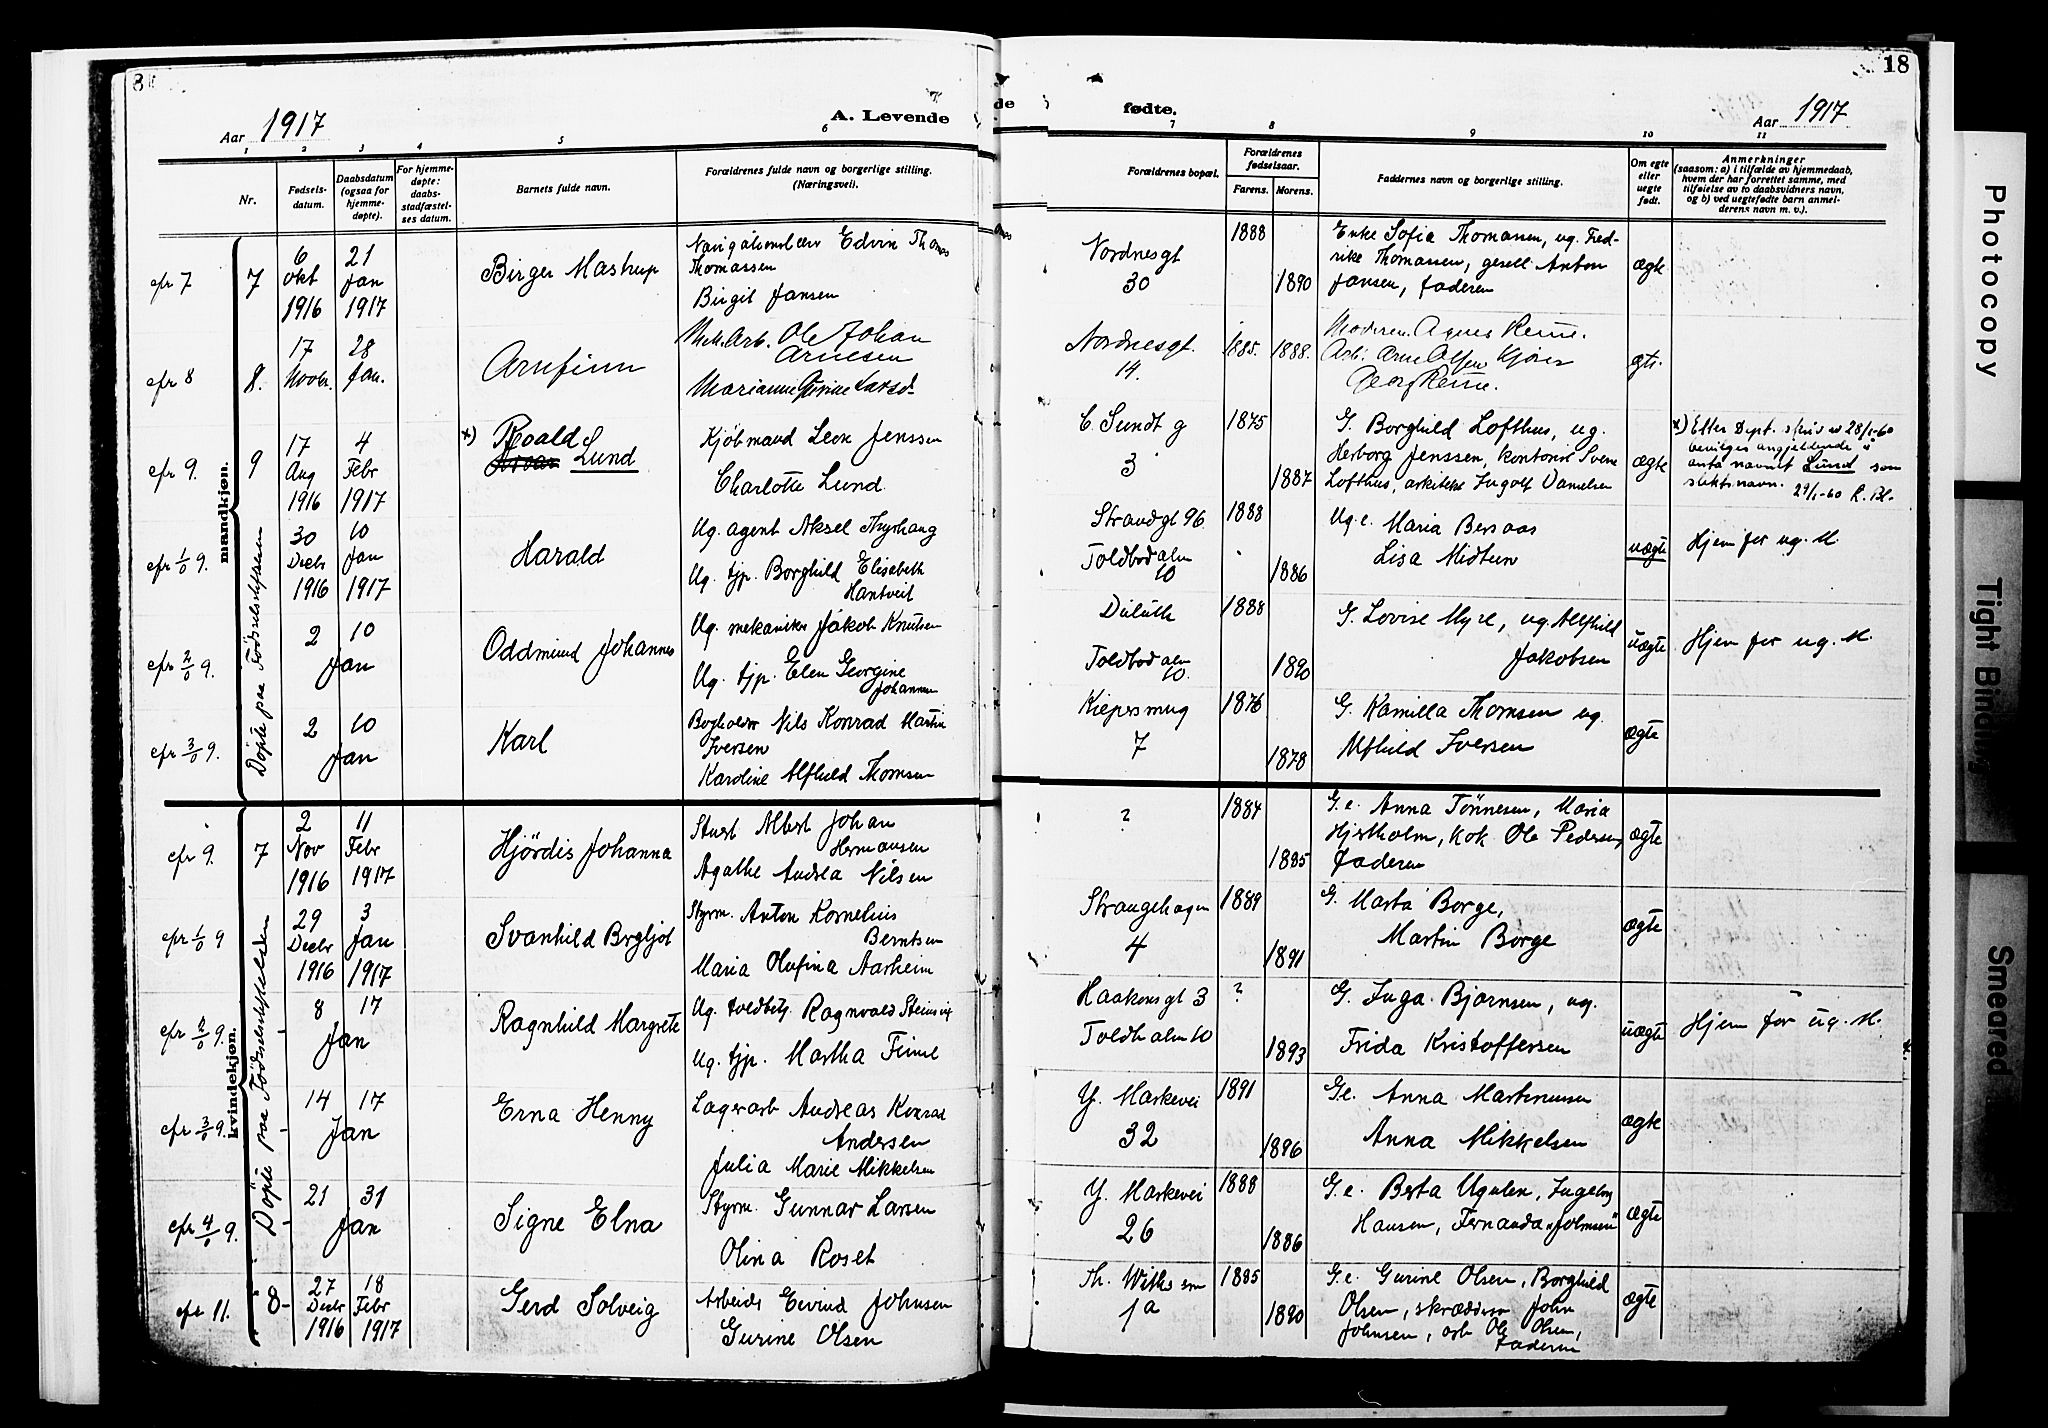 18
Aar 1917
A. Levende
fødte.
Aar 1917
1 2 3 4 5 6 7 8 9 10 11
Nr.
Fødsels-
datum.
Daabsdatum
(ogsaa for
hjemme-
døpte).
For hjemme-
døpte:
daabs-
stadfæstel-
ses datum.
Barnets fulde navn.
Forældrenes fulde navn og borgerlige stilling.
(Næringsvei).
Forældrenes bopæl.
Forældrenes
fødselsaar.
Farens. Morens.
Faddernes navn og borgerlige stilling.
Om egte
eller
uegte
født.
Anmerkninger
(saasom: a) i tilfælde av hjemmedaab,
hvem der har forrettet samme, med
tilføielse av to daabsvidners navn,
og b) ved uegtefødte barn anmel-
derens navn m. v.).
mandkjøn.
Døpte paa Fødselsstiftelsen
cfr 7
7
6 Okt 1916
21 Jan 1917
Birger Mastrup
Edvin Thomas
Thomassen
Birgit Jansen
Nordnesgt
30
1888
1890
Enke Sofia Thomassen, ug. Fred-
rike Thomassen, gesell Anton
Jansen, faderen
ægte
cfr 8
8.
17 Novbr.
28 Jan.
Arnfinn
Mek. Arb. Ole Johan
Arnesen
Nordnesgt.
14.
1885.
1888.
Moderen. Agnes
Arb: Arne
cfr 9.
9
17 Aug 1916
4 Febr 1917
x) Roald
Lund
Kjøbmand Leon Jenssen
Charlotte Lund
C. Sundt g
3
1875
1887
G. Borghild Lofthus, ug.
Herborg Jenssen, kontorist
Lofthus, arkitekt Ingolf Danielsen
ægte
x) Etter Dept. skriv av 28/1-60
bevilges angjeldende å
anta navnet Lund som
slektsnavn.
29/1-60 R. Bl.
cfr 1/0 9.
30 Decbr 1916
10 Jan 1917
Harald
Ug. agent Aksel
Ug. tjp. Borghild Elisabeth
Hantveit
Strandgt 96
Toldbodalm
10
1888
1886
Ug. e. Maria Bersaas
Lisa Midtun
uægte
Hjem for ug. M.
cfr 2/0 9.
2
10
Jan
Oddmund Johannes
Ug. mekaniker Jakob Knutsen
Ug. tjp. Elen Georgine
Johannesen
Duluth
Toldbodalm
10.
1888
1890
G. Lovise Myre, ug. Alfhild
Jakobsen
uægte
Hjem for ug. M.
cfr 3/0 9.
2
10
Jan
Karl
Bogholder Nils Konrad Martin
Iversen
Karoline Alfhild Thomsen
Kiepersmug
7
1876
1878
G. Kamilla Thomsen ug.
Alfhild Iversen
ægte
kvindekjøn.
Døpte paa Fødselsstiftelsen
cfr 9.
7
2 Nov 1916
11 Febr 1917
Hjørdis Johanna
Stuert Albert Johan
Hermansen
Agathe Andrea Nilsen
?
1884
1885
G.e. Anna Tønnesen, Maria
Hjertholm, kok Ole Pedersen,
faderen
ægte
cfr 1/0 9
29 Decbr 1916
3 Jan 1917
Svanhild Brgljot
Styrm. Anton Kornelius
Berntsen
Maria Olufina Aarheim
Strangehagen
4
1889
1891
G. Marta Borge,
Martin Borge
ægte
cfr 2/0 9.
8
17
Jan
Ragnhild Margrete
Ug. toldbetj. Ragnvald Steinsvig
Ug. tjp. Martha Finne
Haakonsgt 3
Toldbalm 10
?
1893
G. Inga Bjørnsen, ug.
Frida Kristoffersen
uægte
Hjem for ug. M.
cfr 3/0 9.
14
17
Jan
Erna Henny
Lagerarb Andreas Konrad
Andersen
Julia Marie Mikkelsen
Y. Markevei
32
1891
1896
Ge. Anna Martinussen
Anna Mikkelsen
ægte
cfr 4/0 9.
21
31
Jan
Signe Elna
Styrm. Gunnar Larsen
Olina Roset
Y. Markevei
26
1888
1886
G.e. Berta Ugulen, Ingeborg
Hansen, Fernanda Johnsen
ægte
cfr 11.
8
27 Decbr 1916
18 Febr 1917
Gerd Solveig
Arbeider Eivind Johnsen
Gurine Olsen
Th. Withs sm
1a
1885
1890
G.e. Gurine Olsen, Borghild
Olsen, skrædderen John
Johnsen, arb Ole Olsen,
faderen
ægte
Photocopy
Tight Binding
Smeared